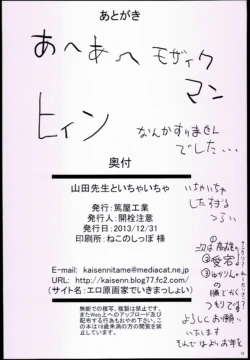 あとがき
あへあへ モザイク
マン
ヒィン
なんかすりません
でした…
奥付
山田先生といちゃいちゃ
発行：篤屋工業
発行人：開栓注意
発行日：2013/12/31
印刷所：ねこのしっぽ 様
E-mail: kaisennitame@mediacat.ne.jp
URL: http://kaisenn.blog77.fc2.com/
(サイト名：エロ原画家でいきまっしょい)
無断での複写、複製は禁止です。
またWeb上へのアップロード及び
配布する行為もおやめ下さい。
この本は18歳未満の方の閲覧を禁
止しています。
いちゃいちゃ
したすぎる
つらい
次は
の
順でかく
つもりです
よろしくお願い
いたします
それではよいお年を